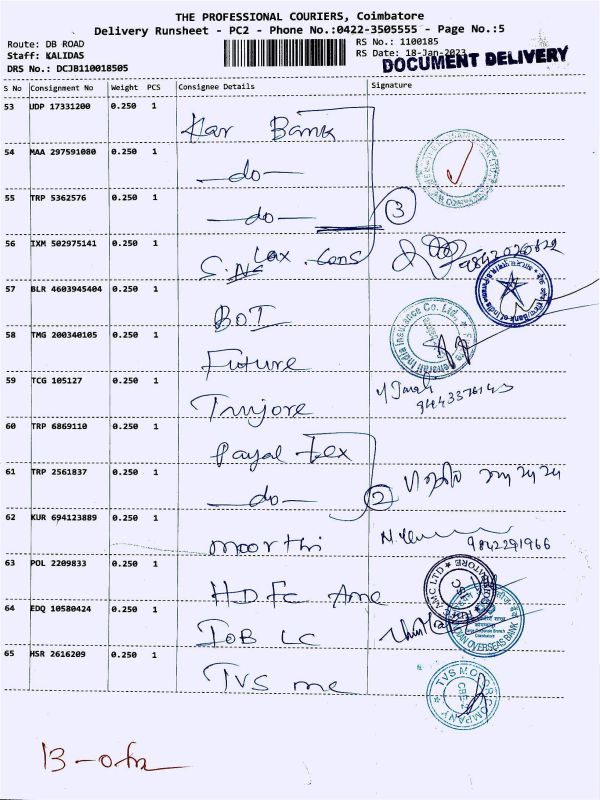 THE PROFESSIONAL COURIERS, Coimbatore
Delivery Runsheet - PC2 - Phone No.:0422-3505555 - Page No.:5
Route: DB ROAD
RS No.: 1100185
Staff: KALIDAS
RS Date: 18-Jan-2023
DRS No.: DCJB110018505
DOCUMENT DELIVERY
S No Consignment No Weight PCS Consignee Details Signature
53 UDP 17331200 0.250 1
Kar Bank
54 MAA 297591080 0.250 1
-do-
55 TRP 5362576 0.250 1
-do- 3
56 IXM 502975141 0.250 1
Lax Cons
57 BLR 4603945404 0.250 1
BOI
58 TMG 200340105 0.250 1
Future
59 TCG 105127 0.250 1
60 TRP 6869110 0.250 1
Payal Tex
61 TRP 2561837 0.250 1
-do- 2
62 KUR 694123889 0.250 1
Moorthi
9842291966
63 POL 2209833 0.250 1
HDFC AMC
64 EDQ 10580424 0.250 1
IOB LC
65 HSR 2616209 0.250 1
TVS